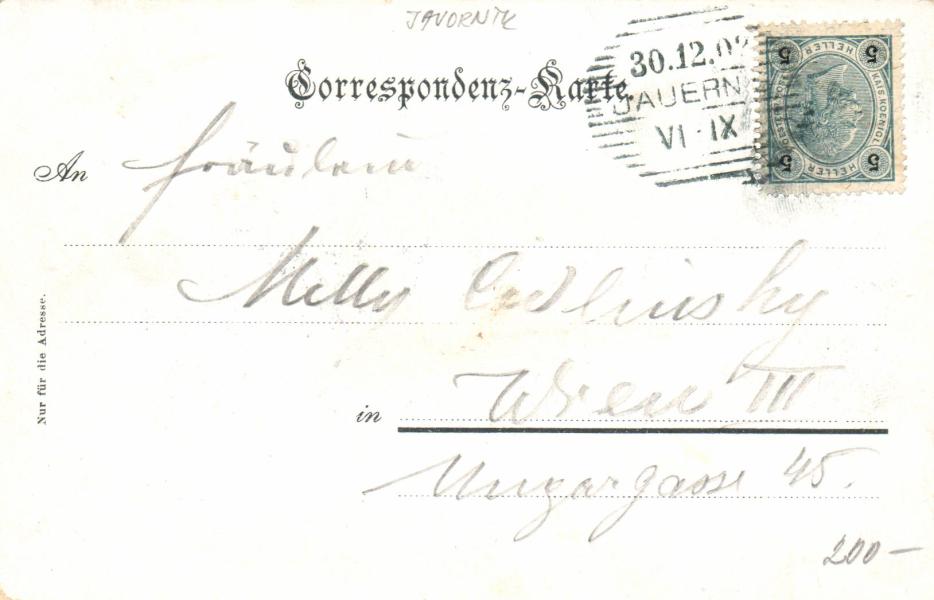 JAVORNIK
Correspondenz-Karte.
30.12.02
JAUERN
VI-IX
5 HELLER 5
KAIS. KOENIGL.
5 HELLER 5
An Fräulein
Milly
Wien III
in
Ungargasse 45.
Nur für die Adresse.
200-